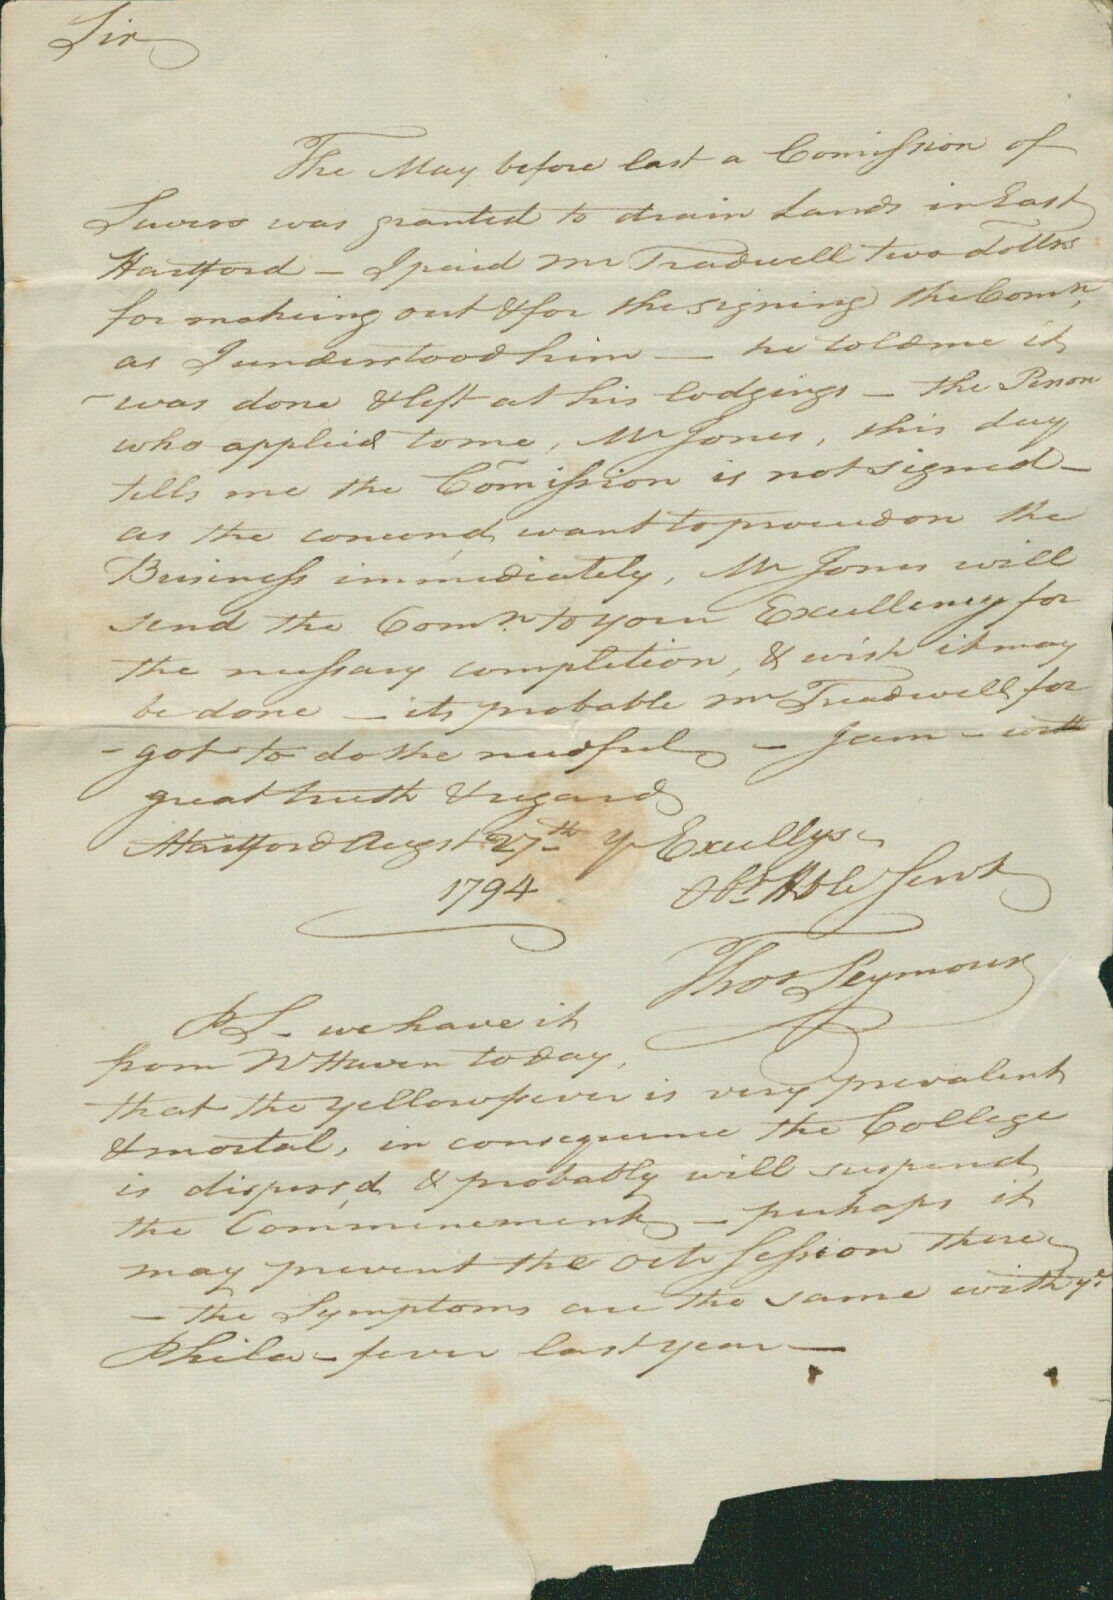 Sir
The May before last a Comission of
Suers was granted to drain Lands in East
Hartford – I paid Mr Treadwell two Dollrs
for makeing out & for the signing the Comn,
as I understood him — he told me it
was done & left at his lodgings – the Person
who applied to me, Mr Jones, this day
tells me the Com̃ission is not signed –
as the concernd, want to proceed on the
Business immediately, Mr Jones will
send the Comn. to your Excellency for
the nessary completion, & wish it may
be done – its probable Mr Treadwell for
– got to do the needful – I am – with
great truth & regard
Hartford Augst 27th yr Excellys
1794 Obt. Hble Servt
Thos Seymour
PS – we have it
from N Haven to day,
that the yellow fever is very prevalent
& mortal, in consequence the College
is dispersd, & probably will suspend
the Commencement – perhaps it
may prevent the Octr Session there
– the Symptoms are the same with ye
Phila – fever last year —